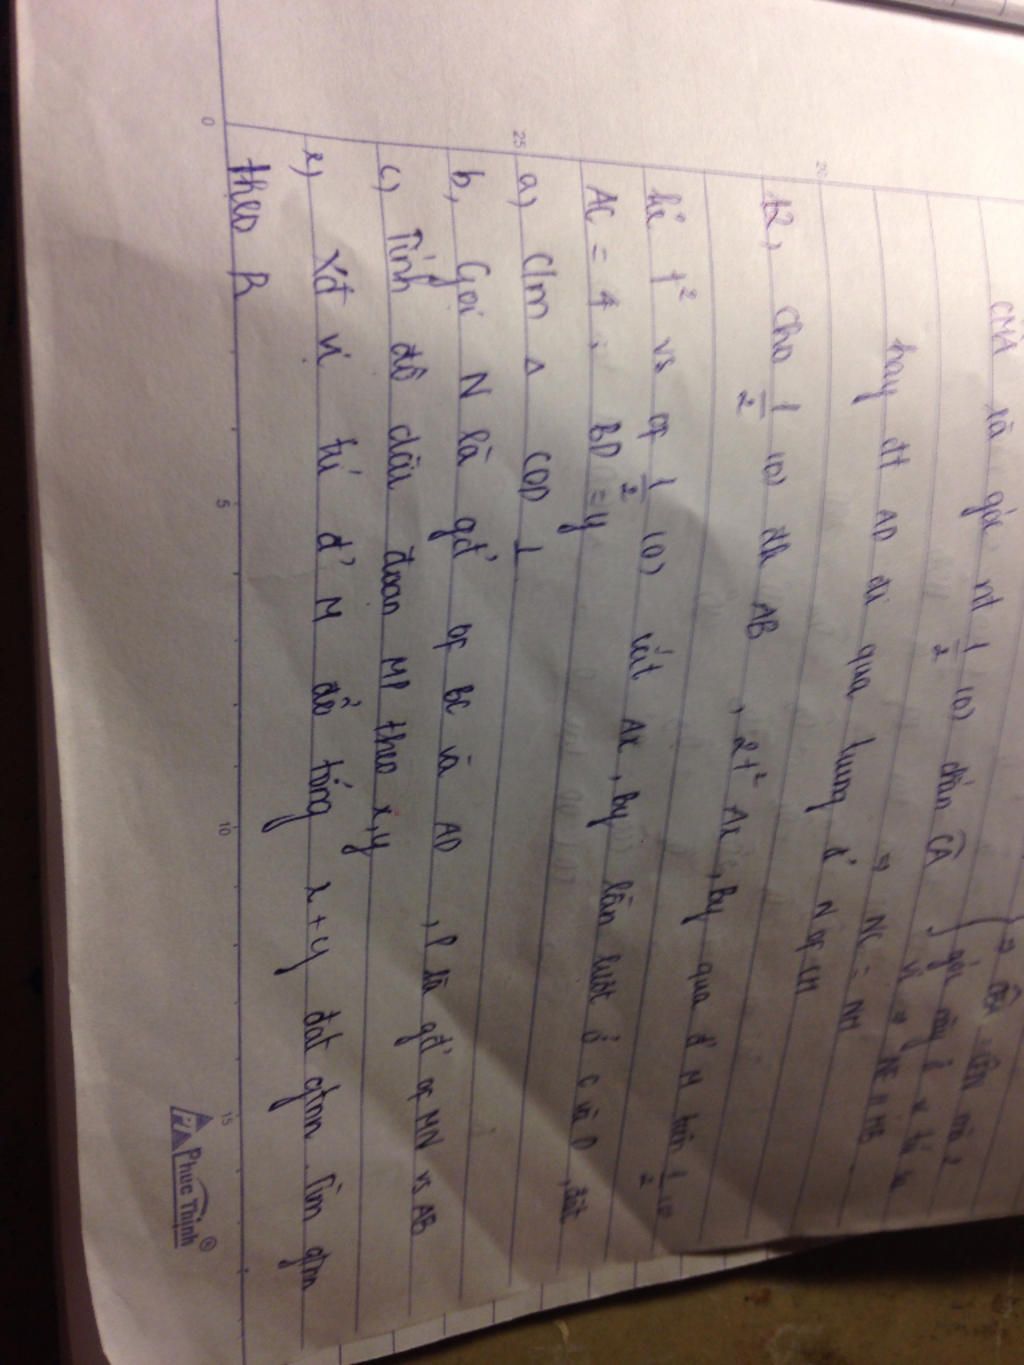 CMA là góc nt 1/2 (O) chắn CA } ⇒ CBA
hay đt AD đi qua trung đ' N of CM
⇒ NC = NM
12, Cho 1/2 (O) đk AB, 2t² Ax, By qua đ' M trên 1/2 (O)
kẻ t² vs of 1/2 (O) cắt Ax, By lần lượt ở C và D, đặt
AC = x; BD = y
a) C/m Δ COD ⊥
b, Gọi N là gđ' of BC và AD, P là gđ' of MN vs AB
c) Tính độ dài đoạn MP theo x, y
e) Xđ vị trí đ' M để tổng x + y đạt gtnn. Tìm gtnn
theo R
0 5 10 15
20
25
Phuc Thinh®